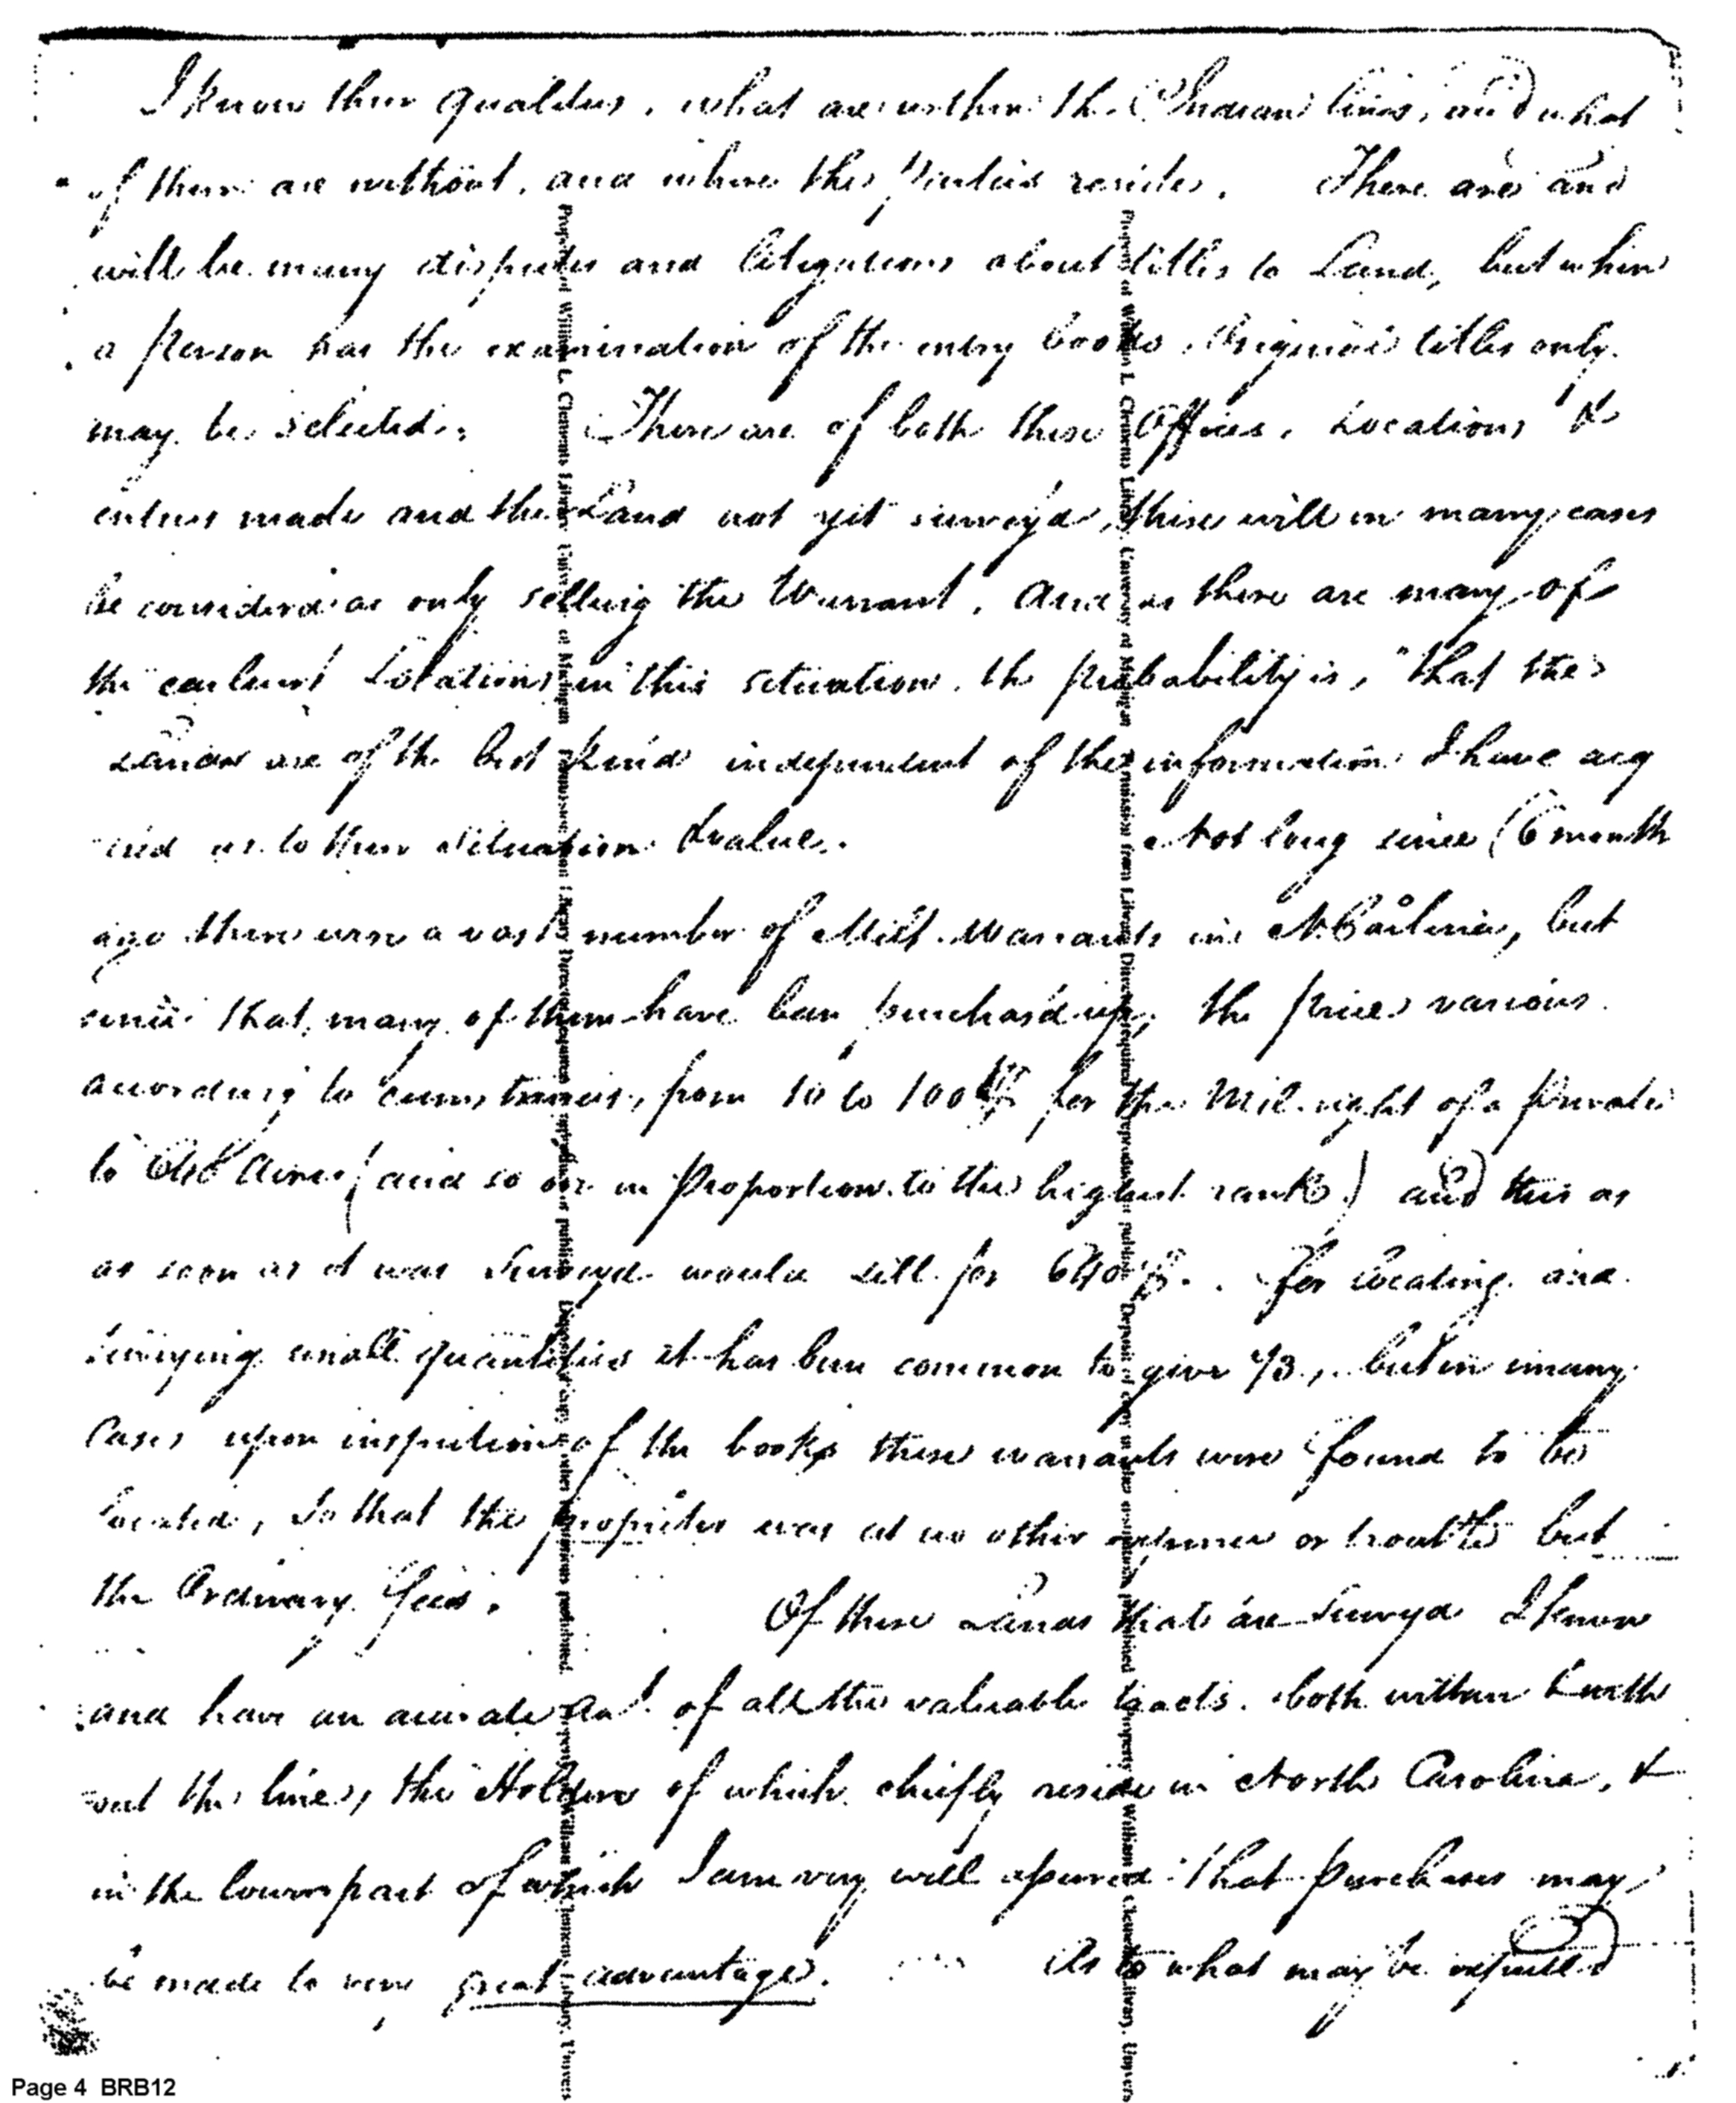 I know their qualities, what are within the Indian lines, and what
of them are without, and where the parties reside. There are and
will be many disputes and litigations about titles to Land, but when
a person has the examination of the entry books, Original titles only
may be selected. There are of both these Offices, Locations &
entries made and the Land not yet surveyd, these will in many cases
be considerd as only selling the Warrant, and as there are many of
the earliest Locations in this situation, the probability is, that the
Lands are of the best kind independent of the information I have acq
uired as to their situation & value. Not long since (6 month
ago there were a vast number of Milt. Warrants in N. Carolina, but
since that, many of them have been purchas'd up, the price various
according to circumstances, from 10 to 100 for the Mil. right of a Private
to 640 Acres (and so on in Proportion to the highest rank) and this as
as soon as it was Surveyd would sell for 640 . For locating and
surveying small quantities it has been common to give 1/3, but in many
Cases upon inspection of the books these warrants were found to be
located, so that the proprietor was at no other expence or trouble but
the Ordinary fees. Of these Lands that are Surveyd I know
and have an accurate Act. of all the valuable tracts, both within & with
out the lines, the Holders of which chiefly reside in North Carolina, &
in the lower part of which I am very well assured that Purchases may
be made to very great advantage. As to what may be expected
Page 4 BRB12